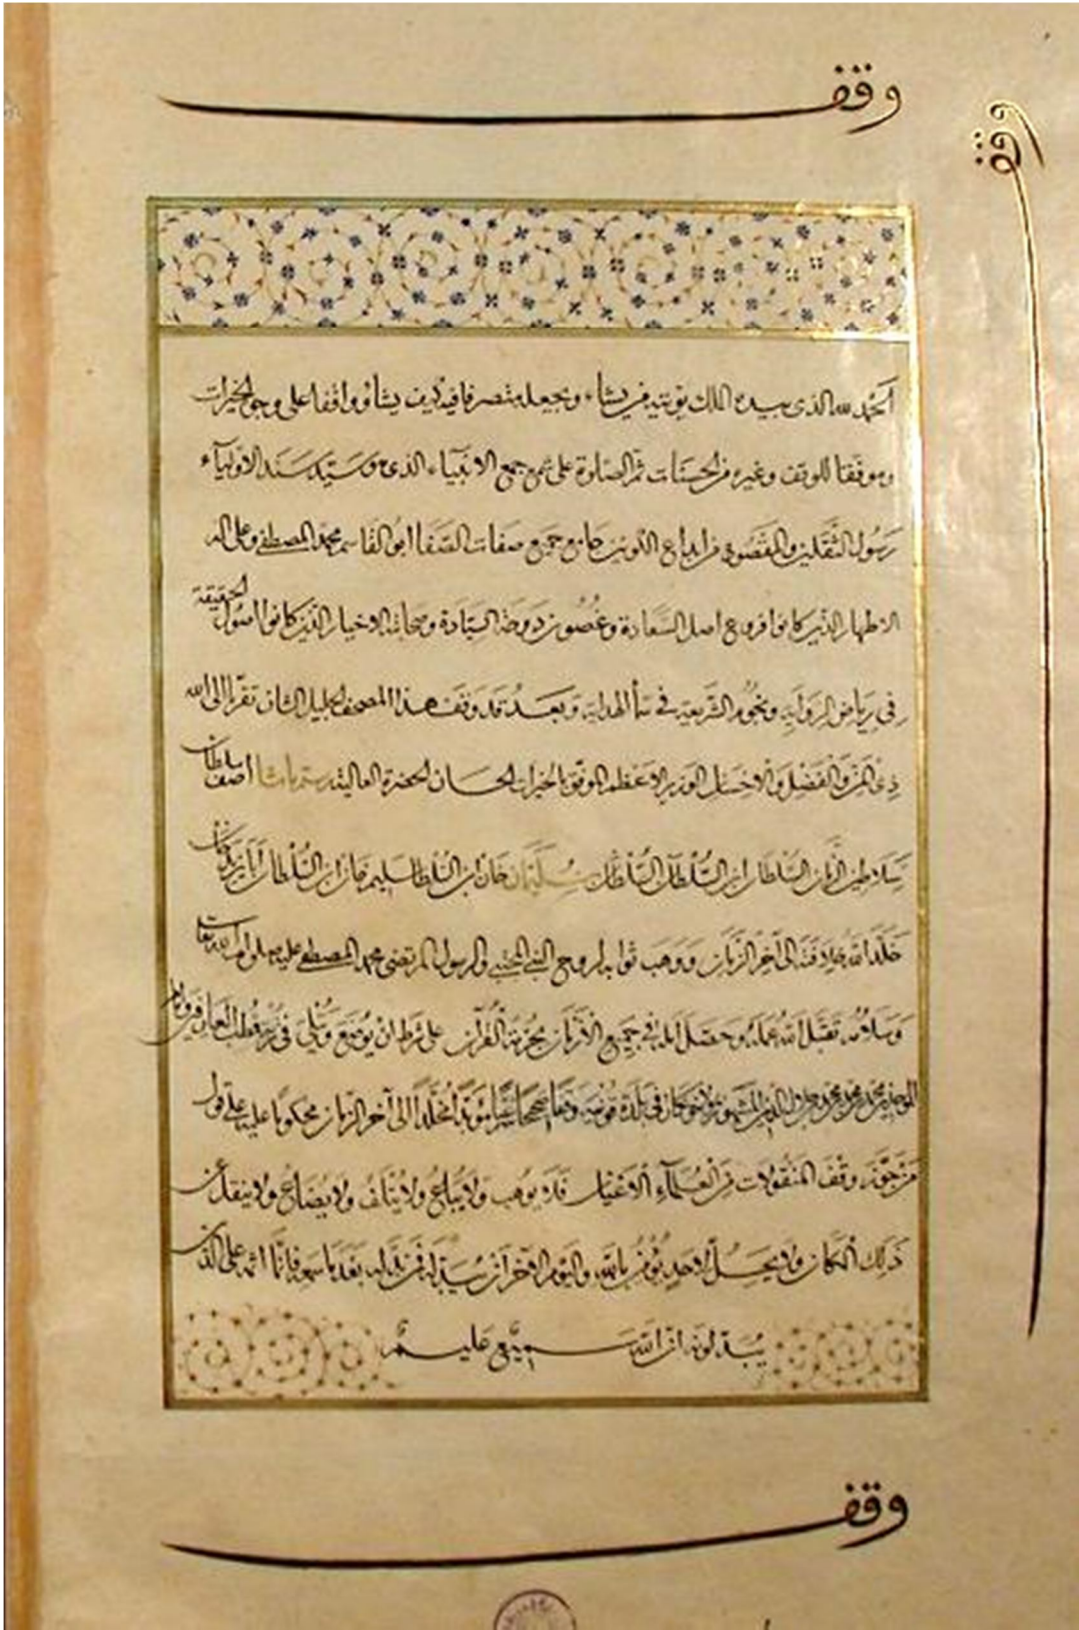 وقف
وقف
الحمد لله الذى بيده الملك يؤتيه من يشاء ويجعله متصرفا فيه كيف يشاؤ وواقفا على وجوه الخيرات
وموفقا للوقف وغيره من الحسنات ثم الصلوة على جميع الانبياء الذى هو سيد سند الاولياء
رسول الثقلين والمقصود من ابداع الكونين جامع جميع صفات الصفا ابو القاسم محمد المصطفى وعلى اله
الاطهار الذين كانوا فروع اصل السعادة وغصون دوحة السيادة وصحابته الاخيار الذين كانوا اصول الحقيقة
فى رياض الرواية ونجوم الشريعة فى سمأ الهداية وبعد قد وقف هذا المصحف الجليل الشان تقربا الى الله
ذى المن والفضل والاحسان الوزير الاعظم الموفق بالخيرات الحسان الحضرة العالية رستم باشا اصف سلطان
سلاطين الزمان السلطان ابن السلطان السلطان سليمان خان ابن السلطان سليم خان ابن السلطان بايزيد خان
خلد الله خلافته الى آخر الزمان ووهب ثوابه لروح النبى المجتبى والرسول المرتضى محمد المصطفى عليه صلوات الله تعالى
وسلامه تقبل الله عمله وحصل امله فى جميع الازمان بحرمة القرآن على شرط ان يوضع ويتلى فى قطب العارفين
محمد محمد المشهور كان فى بلدة قونيه وقفا صحيحا مؤبدا مخلدا الى آخر الزمان محكوما عليه على قول
من جوز وقف المنقولات من العلمآء الاعيان فلا يوهب ولا يباع ولا يتلف ولا يضاع ولا ينقل عن
ذلك المكان ولا يحل لاحد يؤمن بالله واليوم الآخر ان يبدله فمن بدله بعد ما سمعه فانما اثمه على الذين
يبدلونه ان الله سميع عليم
وقف